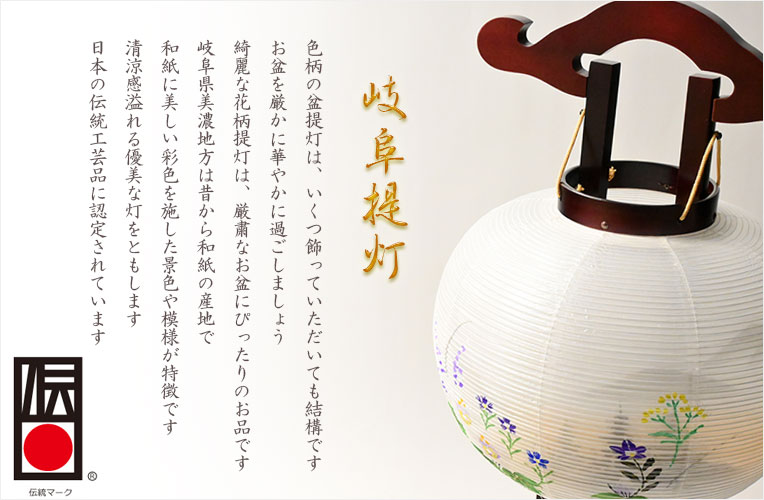 岐阜提灯
色柄の盆提灯は、いくつ飾っていただいても結構です
お盆を厳かに華やかに過ごしましょう
綺麗な花柄提灯は、厳粛なお盆にぴったりのお品です
岐阜県美濃地方は昔から和紙の産地で
和紙に美しい彩色を施した景色や模様が特徴です
清涼感溢れる優美な灯をともします
日本の伝統工芸品に認定されています
伝
®
伝統マーク